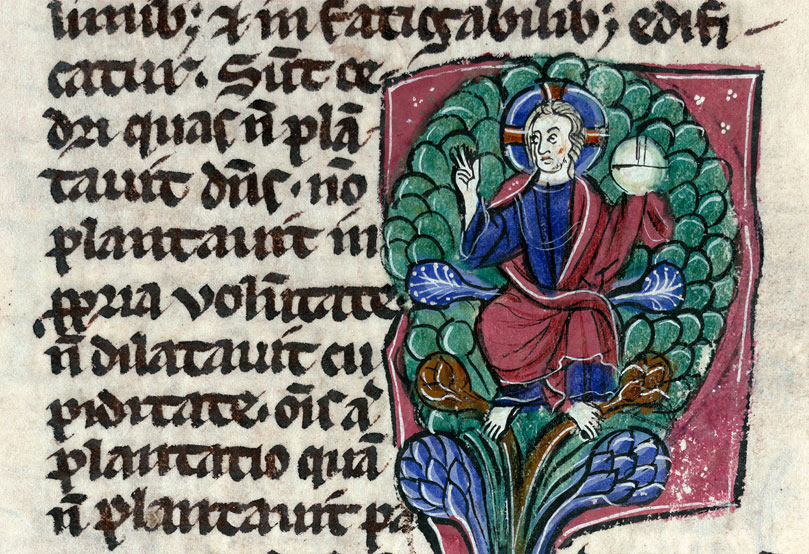 limib; & in fatigabilib; edifi
catur. Sūt ce
dri quas n̄ plā
tauit dn̄s. nō
plantauit in
ꝓpria volūtate
n̄ dilatauit cu
piditate. oīs aͥ
plantatio quā
n̄ plantauit pa